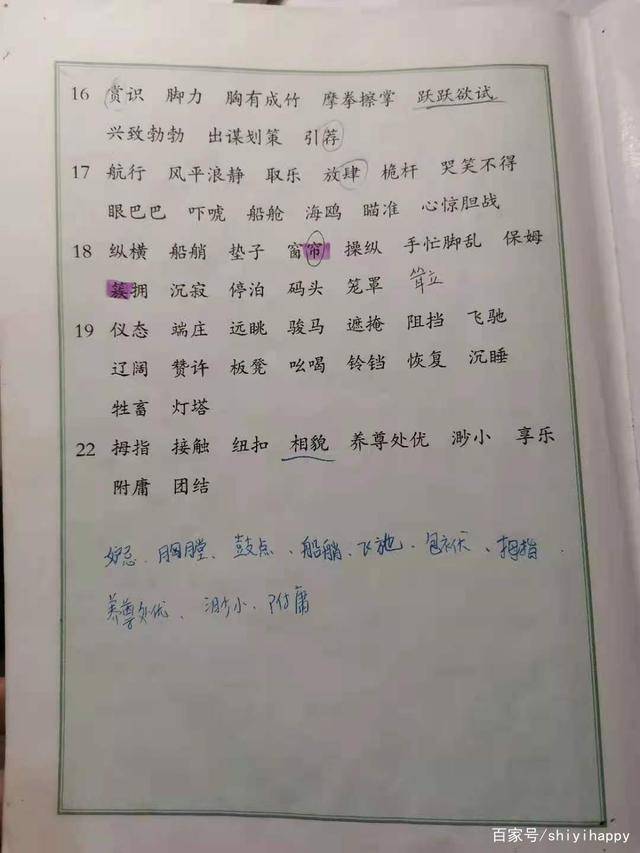 16 赏识 脚力 胸有成竹 摩拳擦掌 跃跃欲试
兴致勃勃 出谋划策 引荐
17 航行 风平浪静 取乐 放肆 桅杆 哭笑不得
眼巴巴 吓唬 船舱 海鸥 瞄准 心惊胆战
18 纵横 船艄 垫子 窗帘 操纵 手忙脚乱 保姆
簇拥 沉寂 停泊 码头 笼罩 耸立
19 仪态 端庄 远眺 骏马 遮掩 阻挡 飞驰
辽阔 赞许 板凳 吆喝 铃铛 恢复 沉睡
牲畜 灯塔
22 拇指 接触 纽扣 相貌 养尊处优 渺小 享乐
附庸 团结
胸膛、鼓点、船艄、飞驰、包袱、拇指
养尊处优、渺小、附庸
百家号/shiyihappy